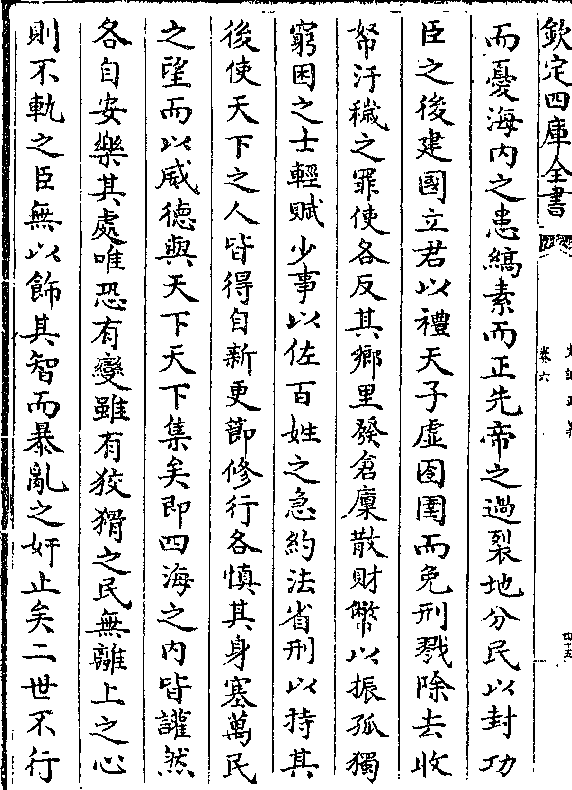 欽定四庫全書
卷六
而憂海内之患縞素而正先帝之過裂地分民以封功
臣之後建國立君以禮天子虛囹圄而免刑戮除去收
帑汙穢之罪使各反其鄉里發倉廩散財幣以振孤獨
窮困之士輕賦少事以佐百姓之急約法省刑以持其
後使天下之人皆得自新更節修行各慎其身塞萬民
之望而以威德與天下天下集矣即四海之内皆讙然
各自安樂其處唯恐有變雖有狡猾之民無離上之心
則不軌之臣無以飾其智而暴亂之奸止矣二世不行